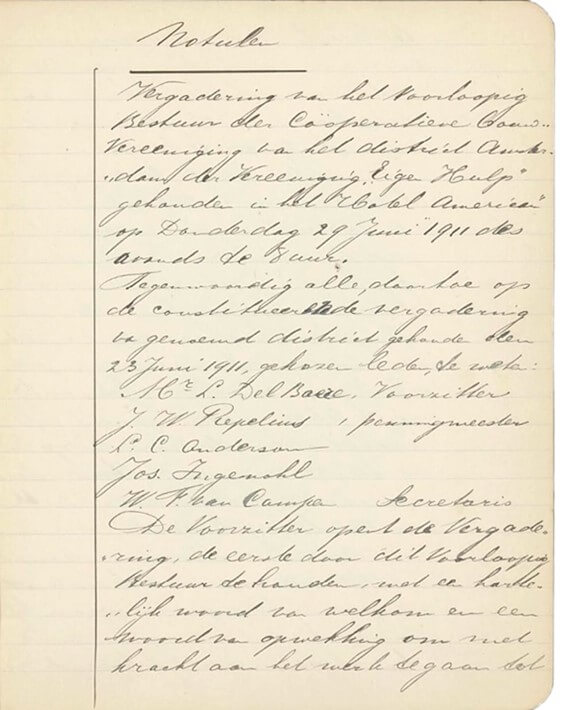 Notulen
Vergadering van het Voorloopig
Bestuur der Coöperatieve Bouw-
Vereeniging van het district Amster-
„dam der Vereeniging „Eigen Hulp"
gehouden in het "Hotel Americain"
op Donderdag 29 Juni 1911 des
avonds te 8 uur.
Tegenwoordig alle, daartoe op
de constitueerende vergadering
v. genoemd district gehouden den
23 Juni 1911, gekozen leden, te weten:
Mr. L. Del Baere, Voorzitter
J. W. Repelius, penningmeester
L. C. Anderson
Jos. Ingenohl
W. F. van Campen Secretaris
De Voorzitter opent de Vergade-
„ring, de eerste door dit Voorloopig
Bestuur te houden, met een harte-
„lijk woord van welkom en een
woord van opwekking om met
kracht aan het werk te gaan tot